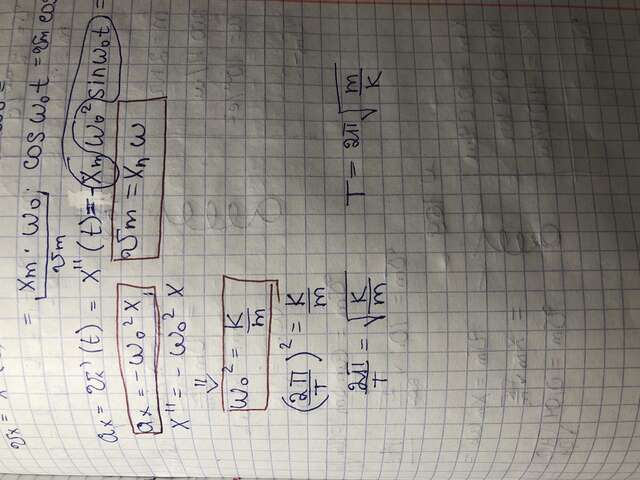 = Xm · ω₀ · cos ω₀t = υm cos
υm
aₓ = υₓ'(t) = X''(t) = -Xm ω₀² sin ω₀t =
aₓ = -ω₀² X υm = Xm ω
X'' = -ω₀² X
⇓
ω₀² = K/m
(2π/T)² = K/m
2π/T = √(K/m) T = 2π √(m/K)